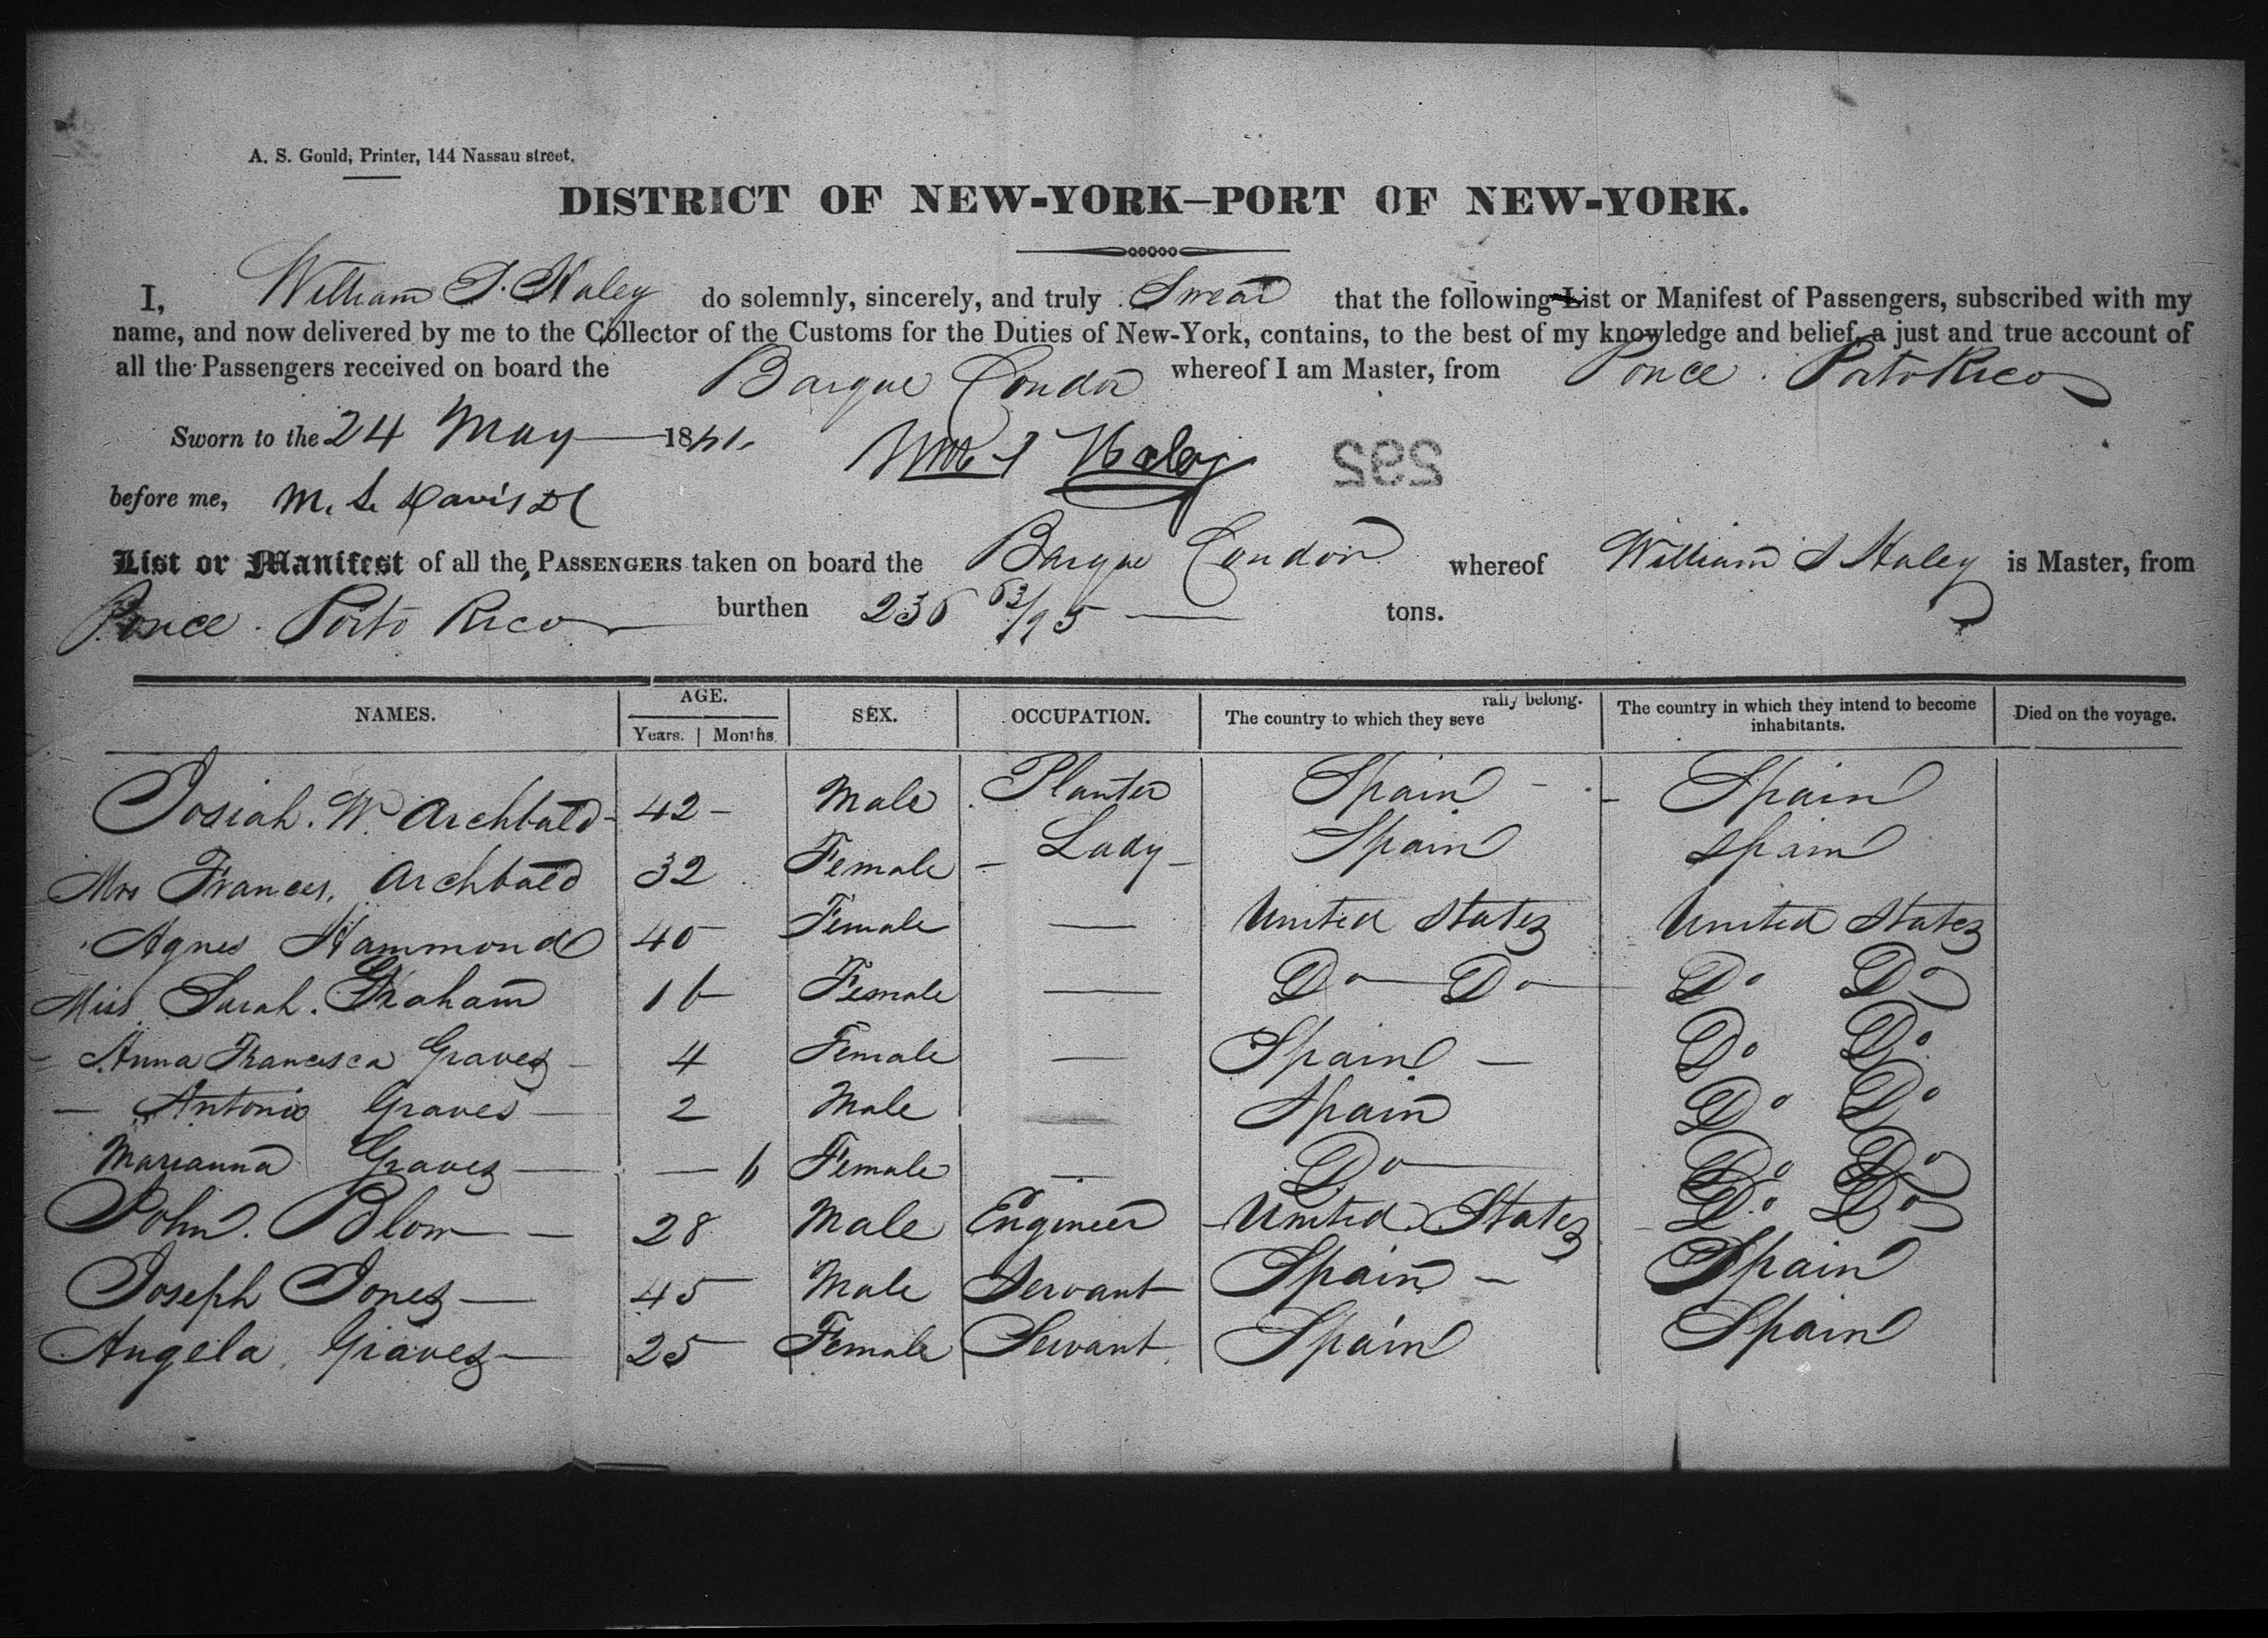 A. S. Gould, Printer, 144 Nassau street.
DISTRICT OF NEW-YORK—PORT OF NEW-YORK.
I, William S. Haley do solemnly, sincerely, and truly Swear that the following List or Manifest of Passengers, subscribed with my
name, and now delivered by me to the Collector of the Customs for the Duties of New-York, contains, to the best of my knowledge and belief, a just and true account of
all the Passengers received on board the Barque Condor whereof I am Master, from Ponce. Porto Rico
Sworn to the 24 May 1841. Wm S Haley 592
before me, M. S. Davis DC
List or Manifest of all the PASSENGERS taken on board the Barque Condor whereof William S Haley is Master, from
Ponce. Porto Rico burthen 236 63/95 tons.
NAMES. AGE. Years. Months. SEX. OCCUPATION. The country to which they severally belong. The country in which they intend to become inhabitants. Died on the voyage.
Josiah. W. Archbald 42 Male Planter Spain Spain
Mrs Frances. Archbald 32 Female Lady Spain Spain
Agnes Hammond 40 Female — United States United States
Miss Sarah. Graham 16 Female — Do Do Do Do
Anna Francesca Graves 4 Female — Spain Do Do
Antonio Graves 2 Male — Spain Do Do
Marianna Graves — 6 Female — Do Do Do
John. Blow 28 Male Engineer United States Do Do
Joseph Jones 45 Male Servant Spain Spain
Angela Graves 25 Female Servant Spain Spain